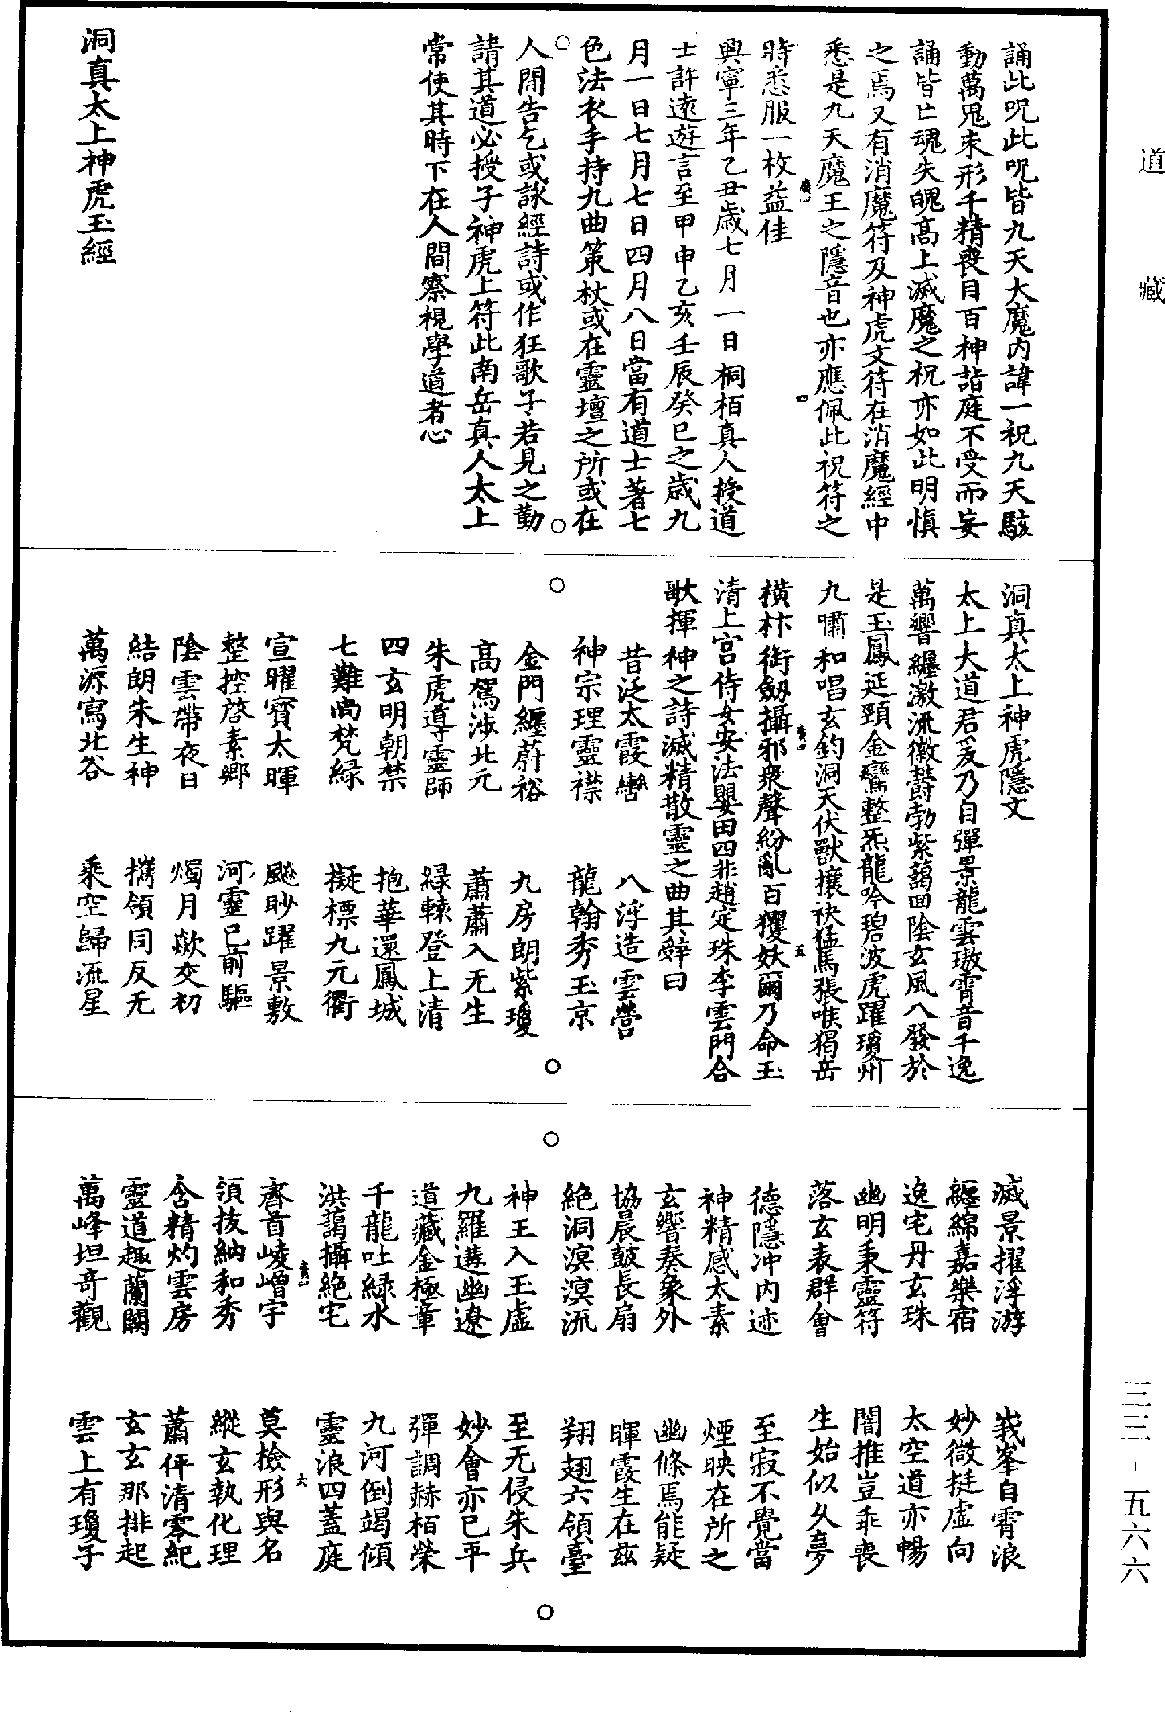 道藏
三三-五六六
誦此呪此呪皆九天大魔内諱一祝九天駭
動萬鬼束形千精喪目百神詣庭不受而妄
誦皆亡魂失魄高上滅魔之祝亦如此明慎
之焉又有消魔符及神虎文符在消魔經中
悉是九天魔王之隱音也亦應佩此祝符之
時悉服一枚益佳
興寧三年乙丑歲七月一日桐栢真人授道
士許遠遊言至甲申乙亥壬辰癸巳之歲九
月一日七月七日四月八日當有道士著七
色法衣手持九曲策杖或在靈壇之所或在
人間告乞或詠經詩或作狂歌子若見之勤
請其道必授子神虎上符此南岳真人太上
常使其時下在人間察視學道者心
洞真太上神虎玉經
洞真太上神虎隱文
太上大道君爰乃自彈景龍雲璈霄音千逸
萬響纏激流徽鬱勃紫藹回陰玄風八發於
是玉鳳延頸金鸞整炁龍吟碧波虎躍瓊州
九嘯和唱玄鈞洞天伏獸攘袂猛馬張喉獨岳
橫杯衔劔攝邪衆聲紛亂百玃妖爾乃命玉
清上宫侍女安法嬰田四非趙定珠李雲門合
歌揮神之詩滅精散靈之曲其辭曰
昔泛太霞巒 八浮造雲營
神宗理靈襟 龍翰秀玉京
金門纏蔚裕 九房朗紫瓊
高駕涉北元 蕭蕭入无生
朱虎導靈師 緑轅登上清
四玄明朝禁 抱華還鳳城
七難尚梵緑 擬標九元衢
宣曜寳太暉 飈眇躍景敷
整控啓素鄉 河靈已前驅
陰雲帶夜日 燭月歘交初
結朗朱生神 携領同反无
萬源寫北谷 乘空歸流星
滅景擢浮游 峩峯自霄浪
纏綿嘉樂宿 妙微挺虚向
逸宅丹玄珠 太空道亦暢
幽明秉靈符 闇推豈乖喪
落玄表群會 生始似久夢
德隱冲内迹 至寂不覺當
神精感太素 煙映在所之
玄響奏象外 幽條焉能疑
協晨皷長扇 暉霞生在茲
絶洞溟溟流 翔翅六領臺
神王入王虚 至无侵朱兵
九羅遘幽遼 妙會亦已平
道藏金極章 彈調赫栢榮
千龍吐緑水 九河倒竭傾
洪藹攝絶宅 靈浪四蓋庭
齊首崚嶒宇 莫撿形與名
領抜納和秀 縱玄執化理
含精灼雲房 蕭伻清零紀
靈道趣蘭闕 玄玄那排起
萬峰坦奇觀 雲上有瓊子